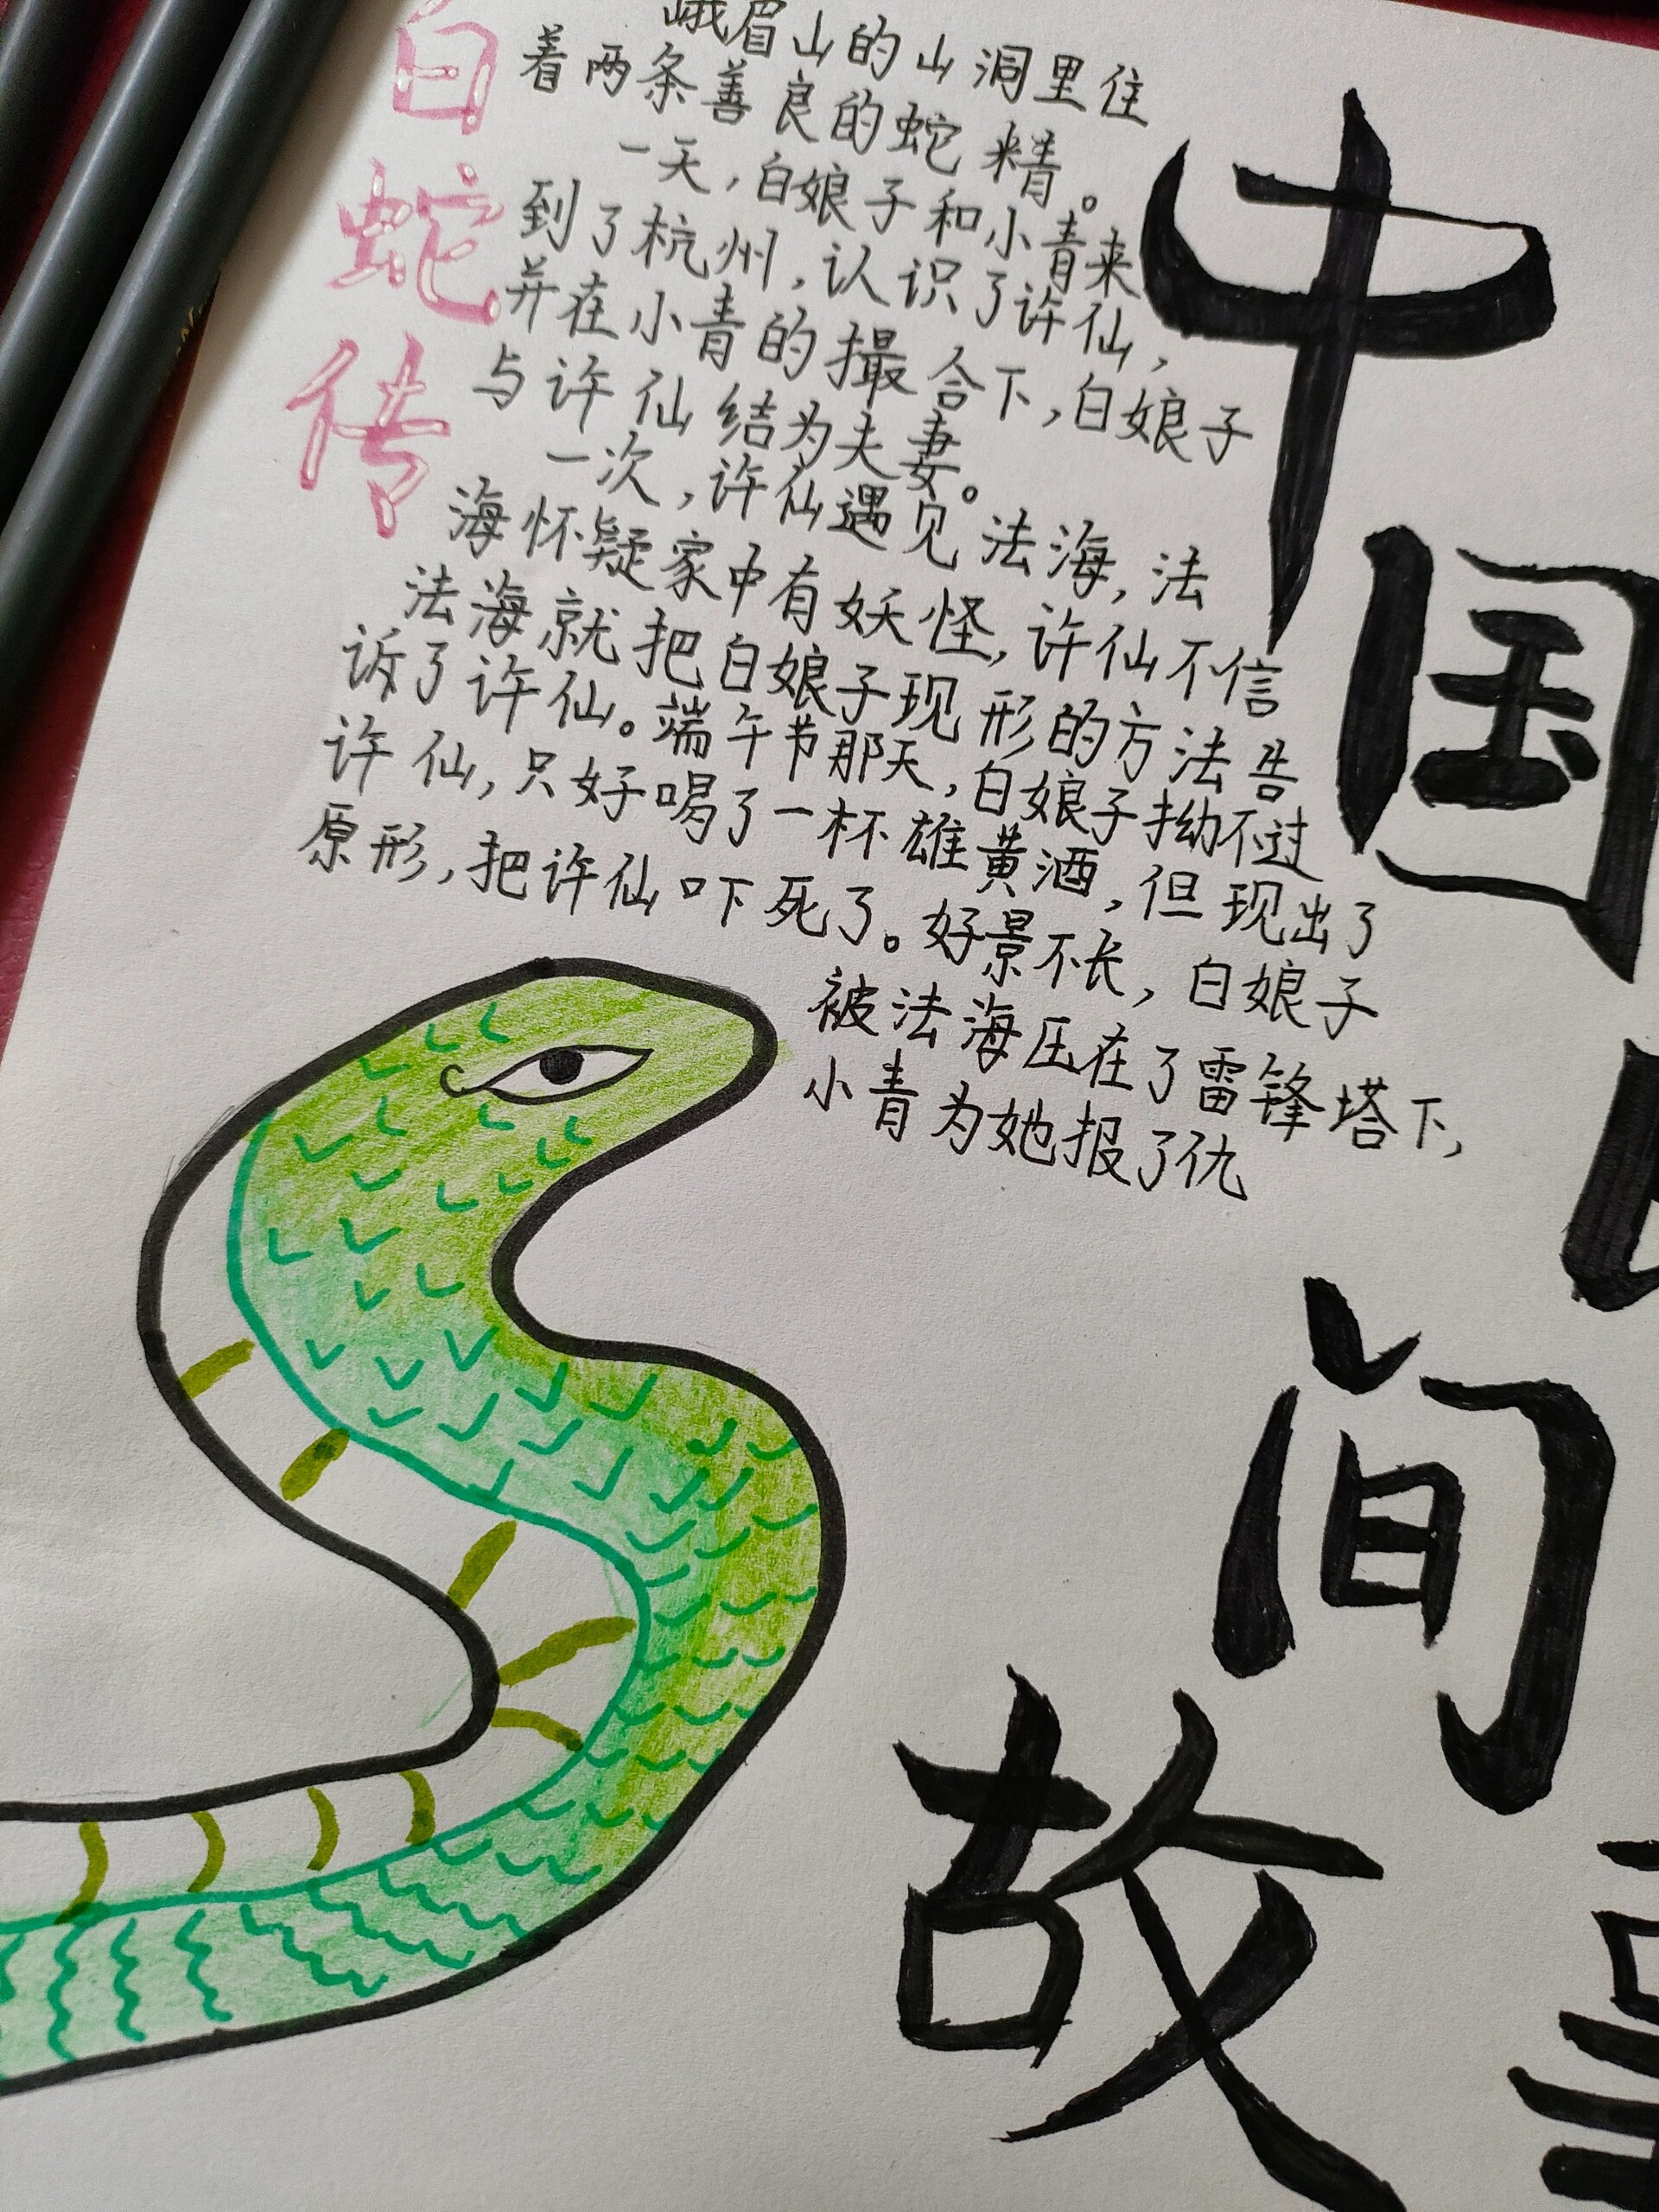 白蛇传
峨眉山的山洞里住
着两条善良的蛇精。
一天，白娘子和小青来
到了杭州，认识了许仙，
并在小青的撮合下，白娘子
与许仙结为夫妻。
一次，许仙遇见法海，法
海怀疑家中有妖怪，许仙不信
法海就把白娘子现形的方法告
诉了许仙。端午节那天，白娘子拗不过
许仙，只好喝了一杯雄黄酒，但现出了
原形，把许仙吓死了。好景不长，白娘子
被法海压在了雷锋塔下，
小青为她报了仇
中国
间
故